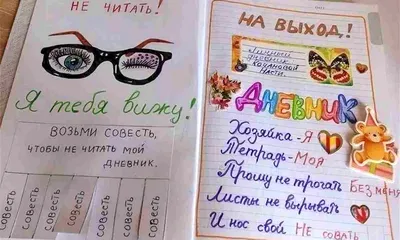 НЕ ЧИТАТЬ!
Я тебя вижу!
ВОЗЬМИ СОВЕСТЬ,
ЧТОБЫ НЕ ЧИТАТЬ МОЙ
ДНЕВНИК.
СОВЕСТЬ
СОВЕСТЬ
СОВЕСТЬ
СОВЕСТЬ
СОВЕСТЬ
СОВЕСТЬ
НА ВЫХОД!
Личный
дневник
Насти.
ДНЕВНИК
Хозяйка-Я
Тетрадь-Моя
Прошу не трогать Без меня
Листы не вырывать
И нос свой НЕ СОВАТЬ